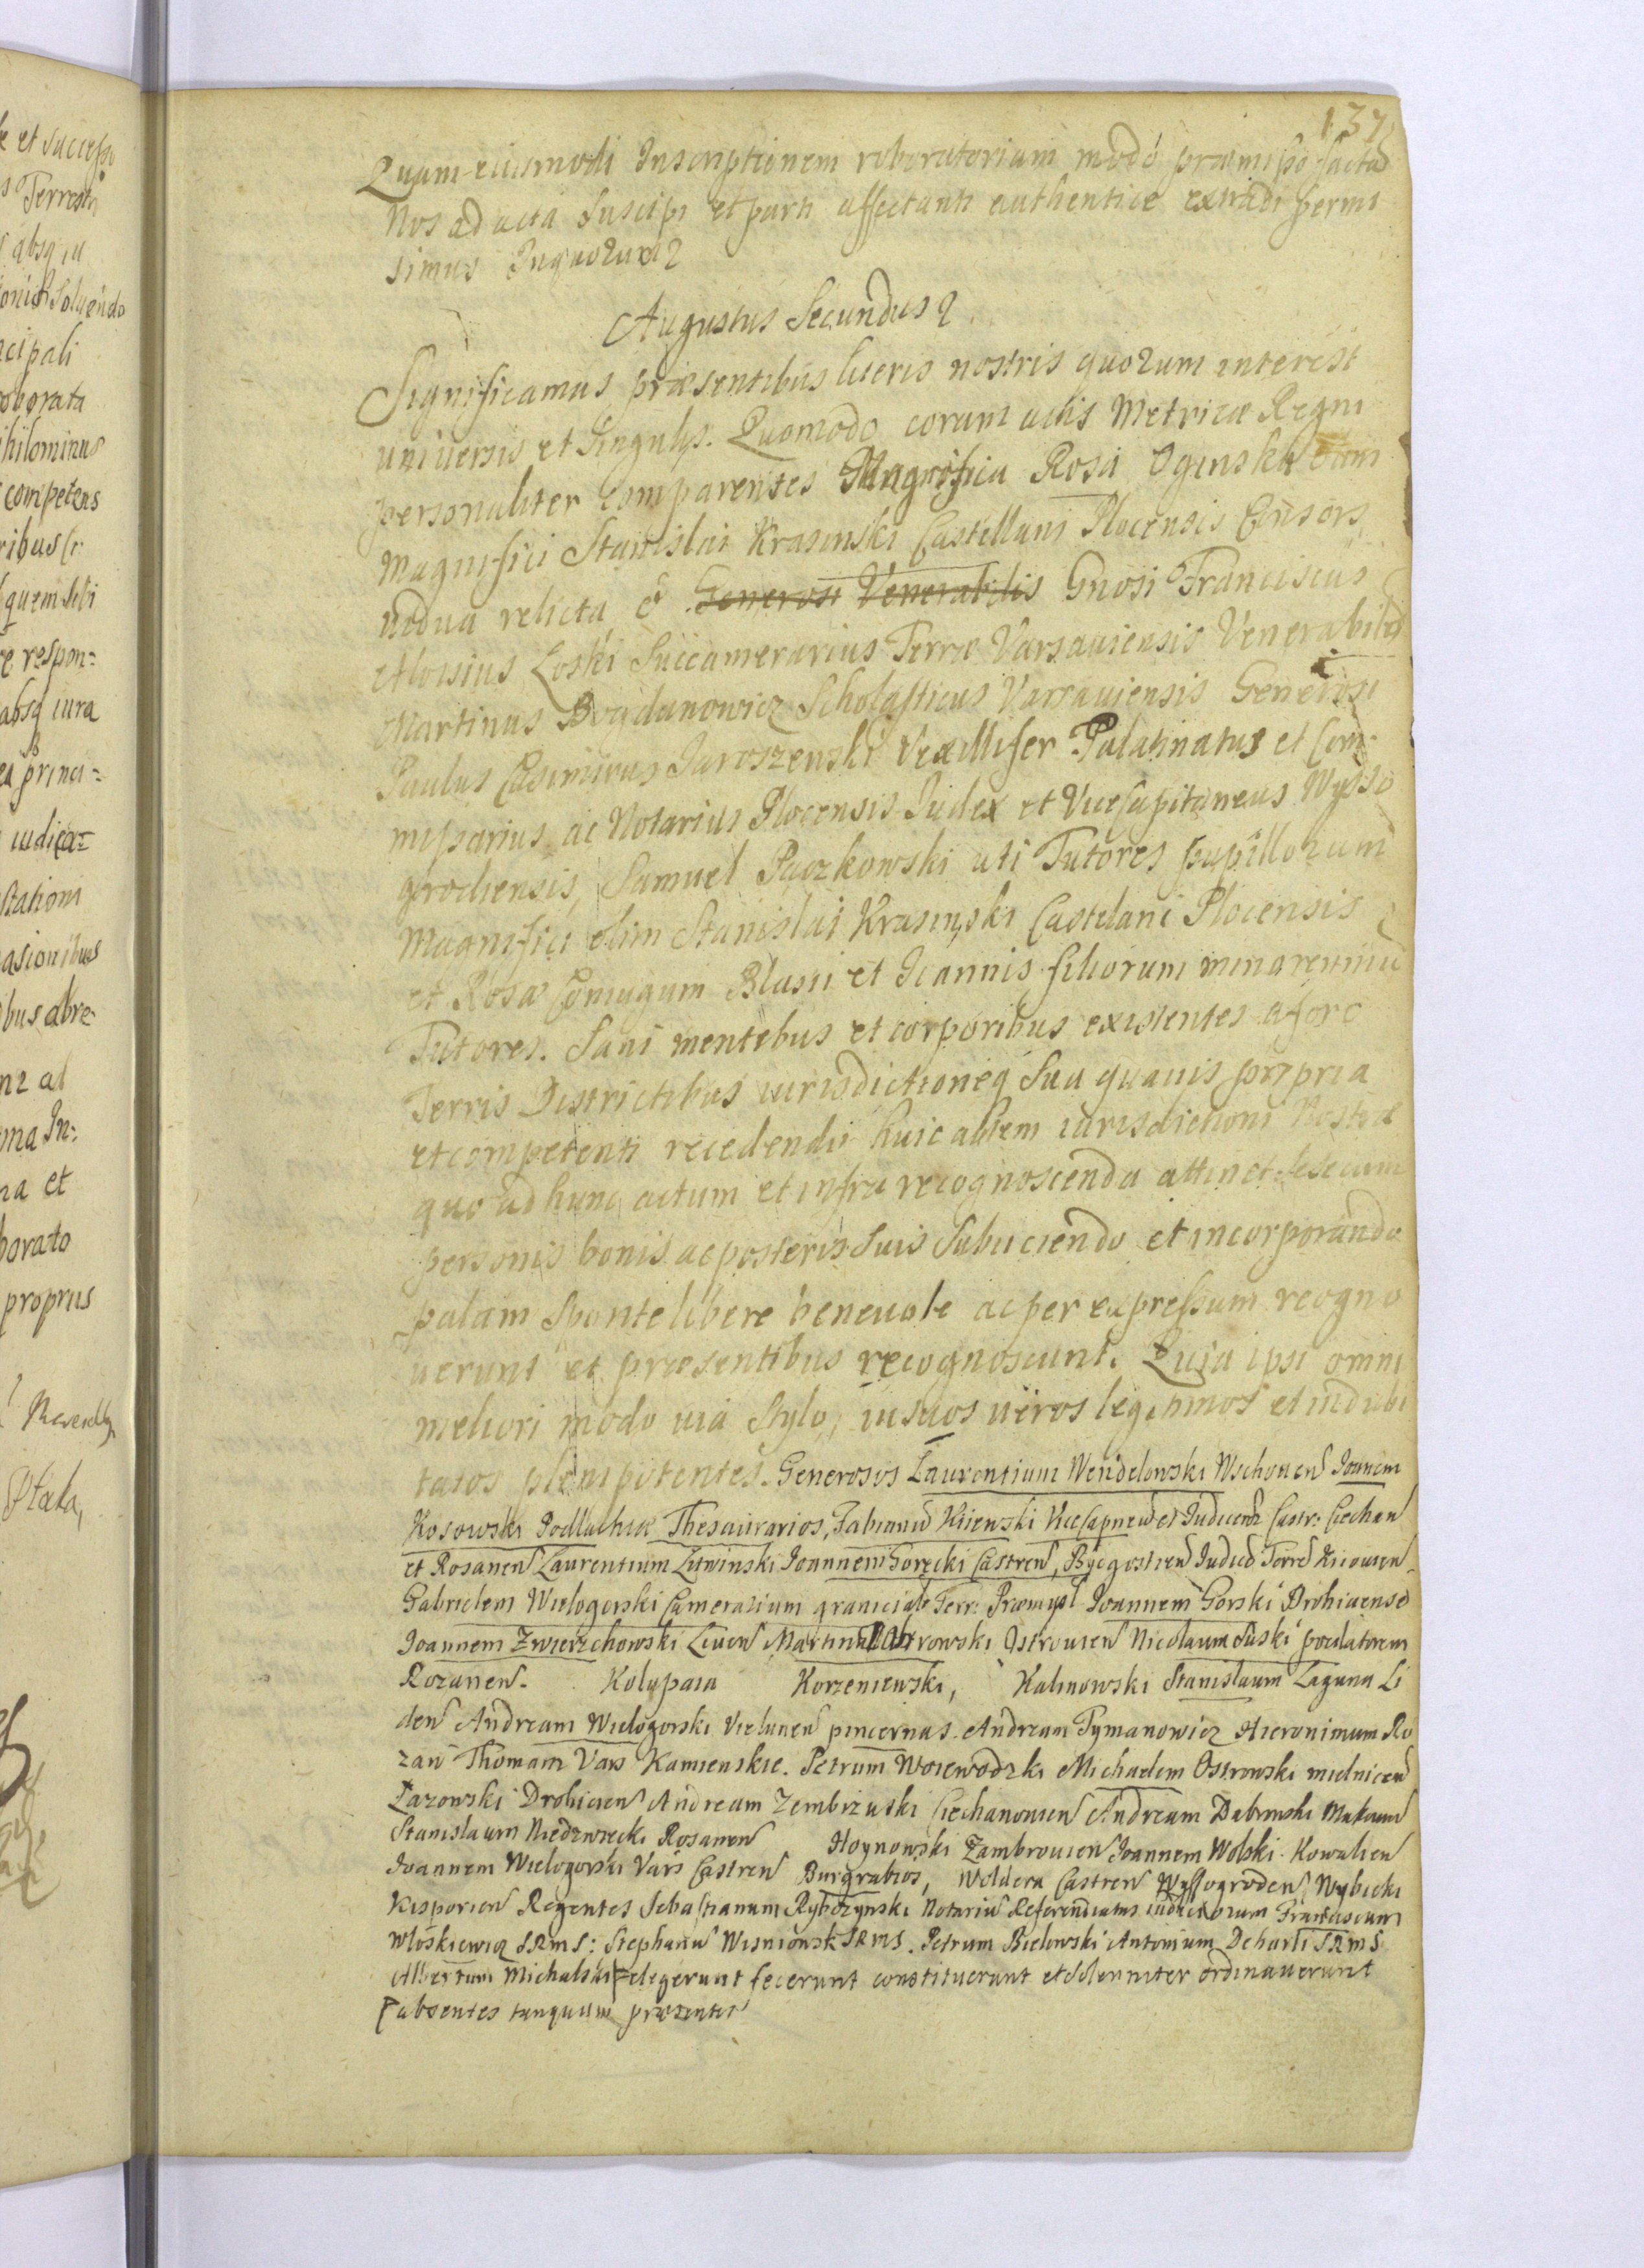 137
Quam eiusmodi Inscriptionem roboratoriam modo præmisso factã
Nos ad acta suscipi et parti affectanti authentice extradi permi
simus Inquorum
Augustus Secundus
Significamus præsentibus literis nostris quorum interest
universis et singulis. Quomodo coram actis Metricæ Regni
personaliter comparentes Magnifica Rosa Oginska olim
Magnifici Stanislai Krasinski Castellani Plocensis Consors
uidua relicta & Generosi Venerabilis Gnosi Franciscus
Aloisius Loski Succamerarius Terræ Varsauiensis Venerabilis
Martinus Bogdanowicz Scholasticus Varsauiensis Generosi
Paulus Casimirus Jaroszewski Vexillifer Palatinatus et Com
missarius ac Notarius Plocensis Judex et Vicecapitaneus Wysso
grodiensis, Samuel Paczkowski uti Tutores pupillorum
Magnifici olim Stanislai Krasinski Castelani Plocensis
et Rosæ Coniugum Blasii et Joannis filiorum minorennium
Tutores. Sani mentebus et corporibus existentes a foro
Terris Districtibus iurisdictioneq sua quauis propria
et competenti recedendo huic autem iurisdictioni Nostræ
quo ad hunc actum et infra recognoscenda attinet sese cum
personis bonis ac posteris suis subiiciendo et incorporando
palam sponte libere beneuole ac per expressum recogno
uerunt et præsentibus recognoscunt. Quia ipsi omni
meliori modo uia stylo, in suos ueros legitimos et indubi
tatos plenipotentes. Generosos Laurentium Wendelowski Wschouen Joanem
Kosowski Podlachiæ Thesaurarios, Fabianũ Kiienski Vicecapneũ et Judicem Castr: Ciechan
et Rosanen Laurentium Litwinski Joannem Gorecki Castren, Bydgostien Judicẽ Terrẽ Kiiouien
Gabrielem Wielogorski Camerarium graniciale Terr: Præmysl Joannem Gorski Drohicense
Joannem Zwierzchowski Liuen Martinũ Dabrowski Ostrouien Nicolaum Suski pocilatorem
Rozanen. Kolupaia Korzeniewski, Kalinowski Stanislaum Laguna Li
den Andream Wielogorski Vielunen pincernas. Andream Tymanowicz Hieronimum Ro
zan Thomam Vars Kamienskie. Petrum Woiewodzki Michaelem Ostrowski mielnicen
Lazowski Drohicien Andream Zembrzuski Ciechanouien Andream Dabrowski Makouien
Stanislaum Niedzwiecki Rosanen Hoynowski Zambrouien Joannem Wolski Kowalien
Joannem Wielogorski Vars Castren Burgrabios, Woldera Castren Wyssogroden, Wybicki
Kisporien Regentes Sebastianum Rybczynski Notariũ Referendiatus iudiciorum Franciscum
Wloskiewicz SRMS: Stephanũ Wisniowski SRMS. Petrum Bielowski Antonium Deharti SRMS
Albertum Michalski elegerunt fecerunt constituerunt et solenniter ordinauerunt
absentes tanquam præsentes